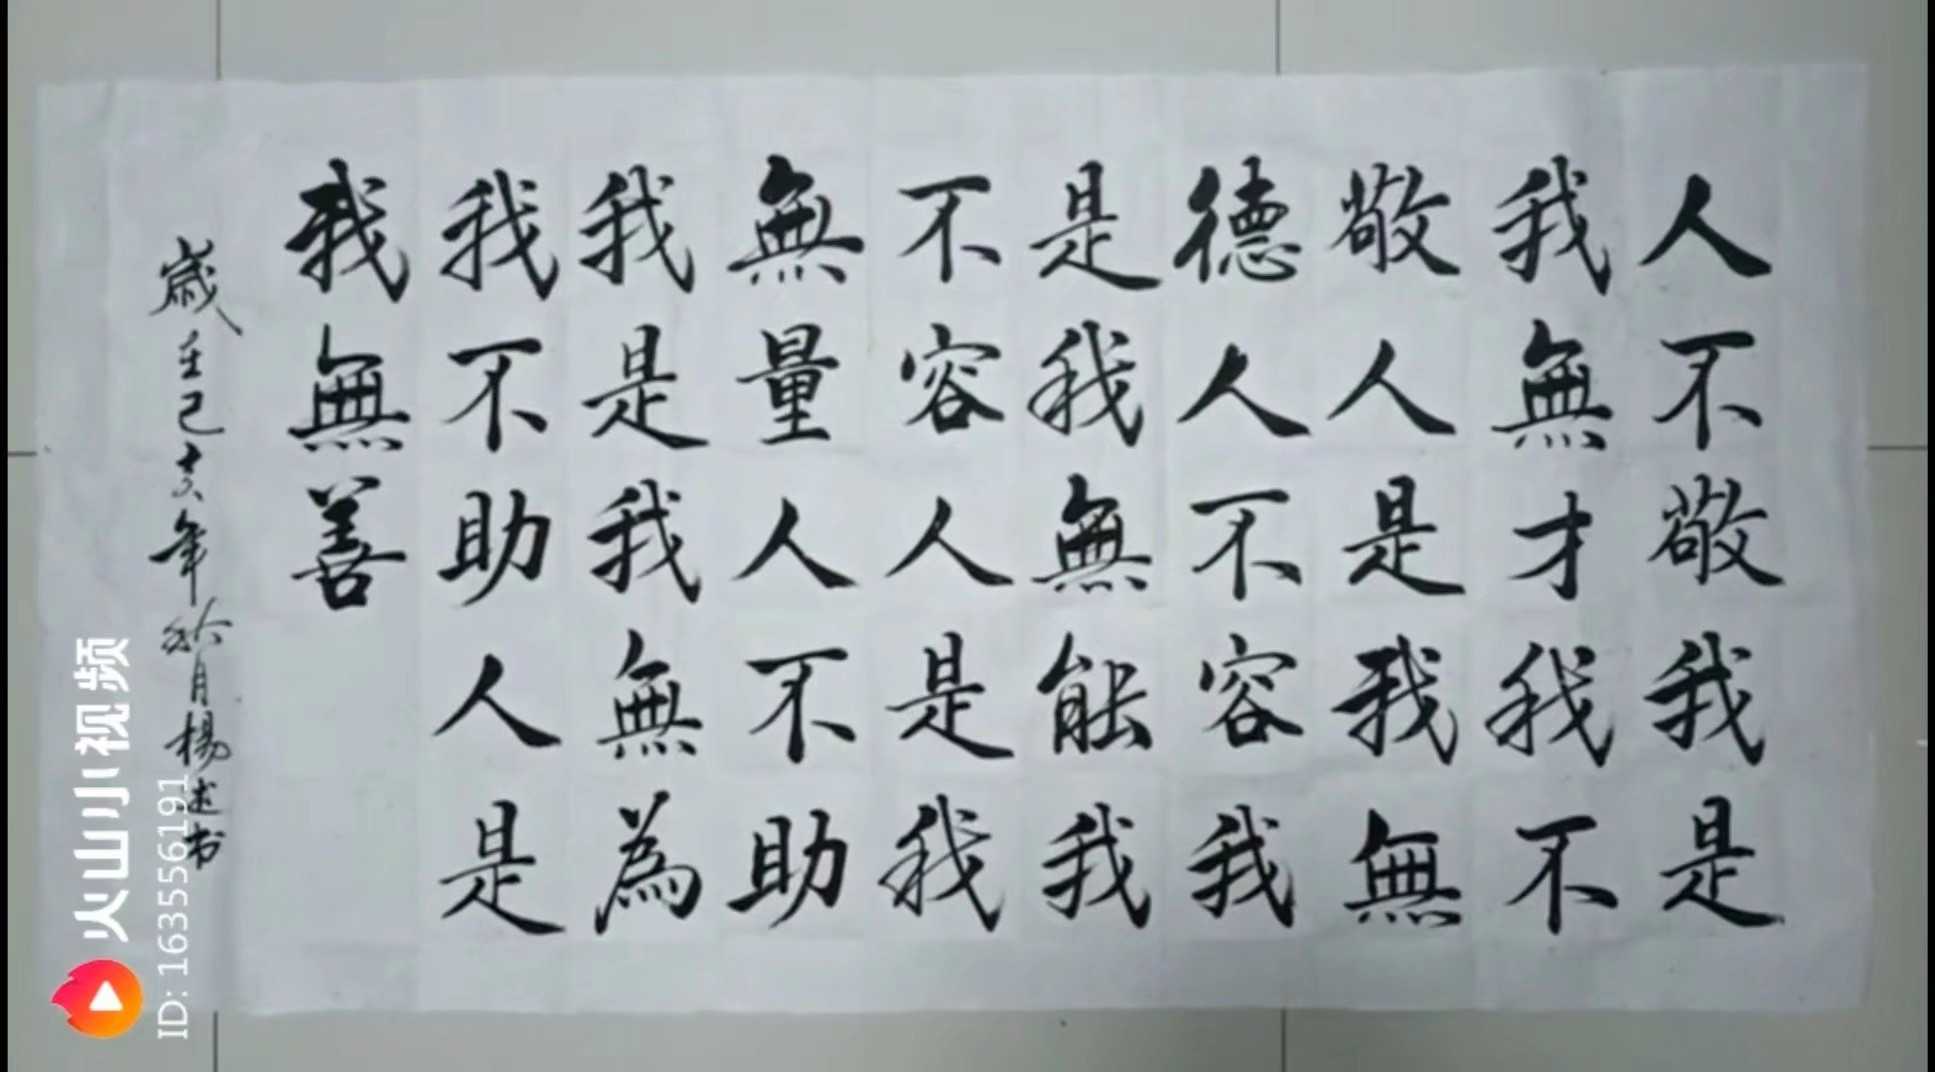 人不敬我是
我無才我不
敬人是我無
德人不容我
是我無能我
不容人是我
無量人不助
我是我無為
我不助人是
我無善
歲在己亥年於月楊述书
火山小视频
ID: 1635556191